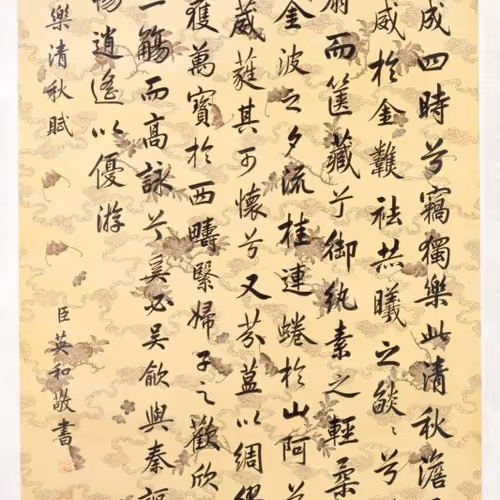 成四時兮竊獨樂此清秋澹
威於金祛炎曦之燄〻兮
扇而篋藏兮御紈素之輕柔
金波之夕流桂連蜷於山阿兮
葳蕤其可懷兮又芬藴以綢繆
獲萬寶於西疇繄婦子之歡欣
一觴而高詠兮奚必吳歈與秦謳
暢逍遙以優游
樂清秋賦
臣英和敬書